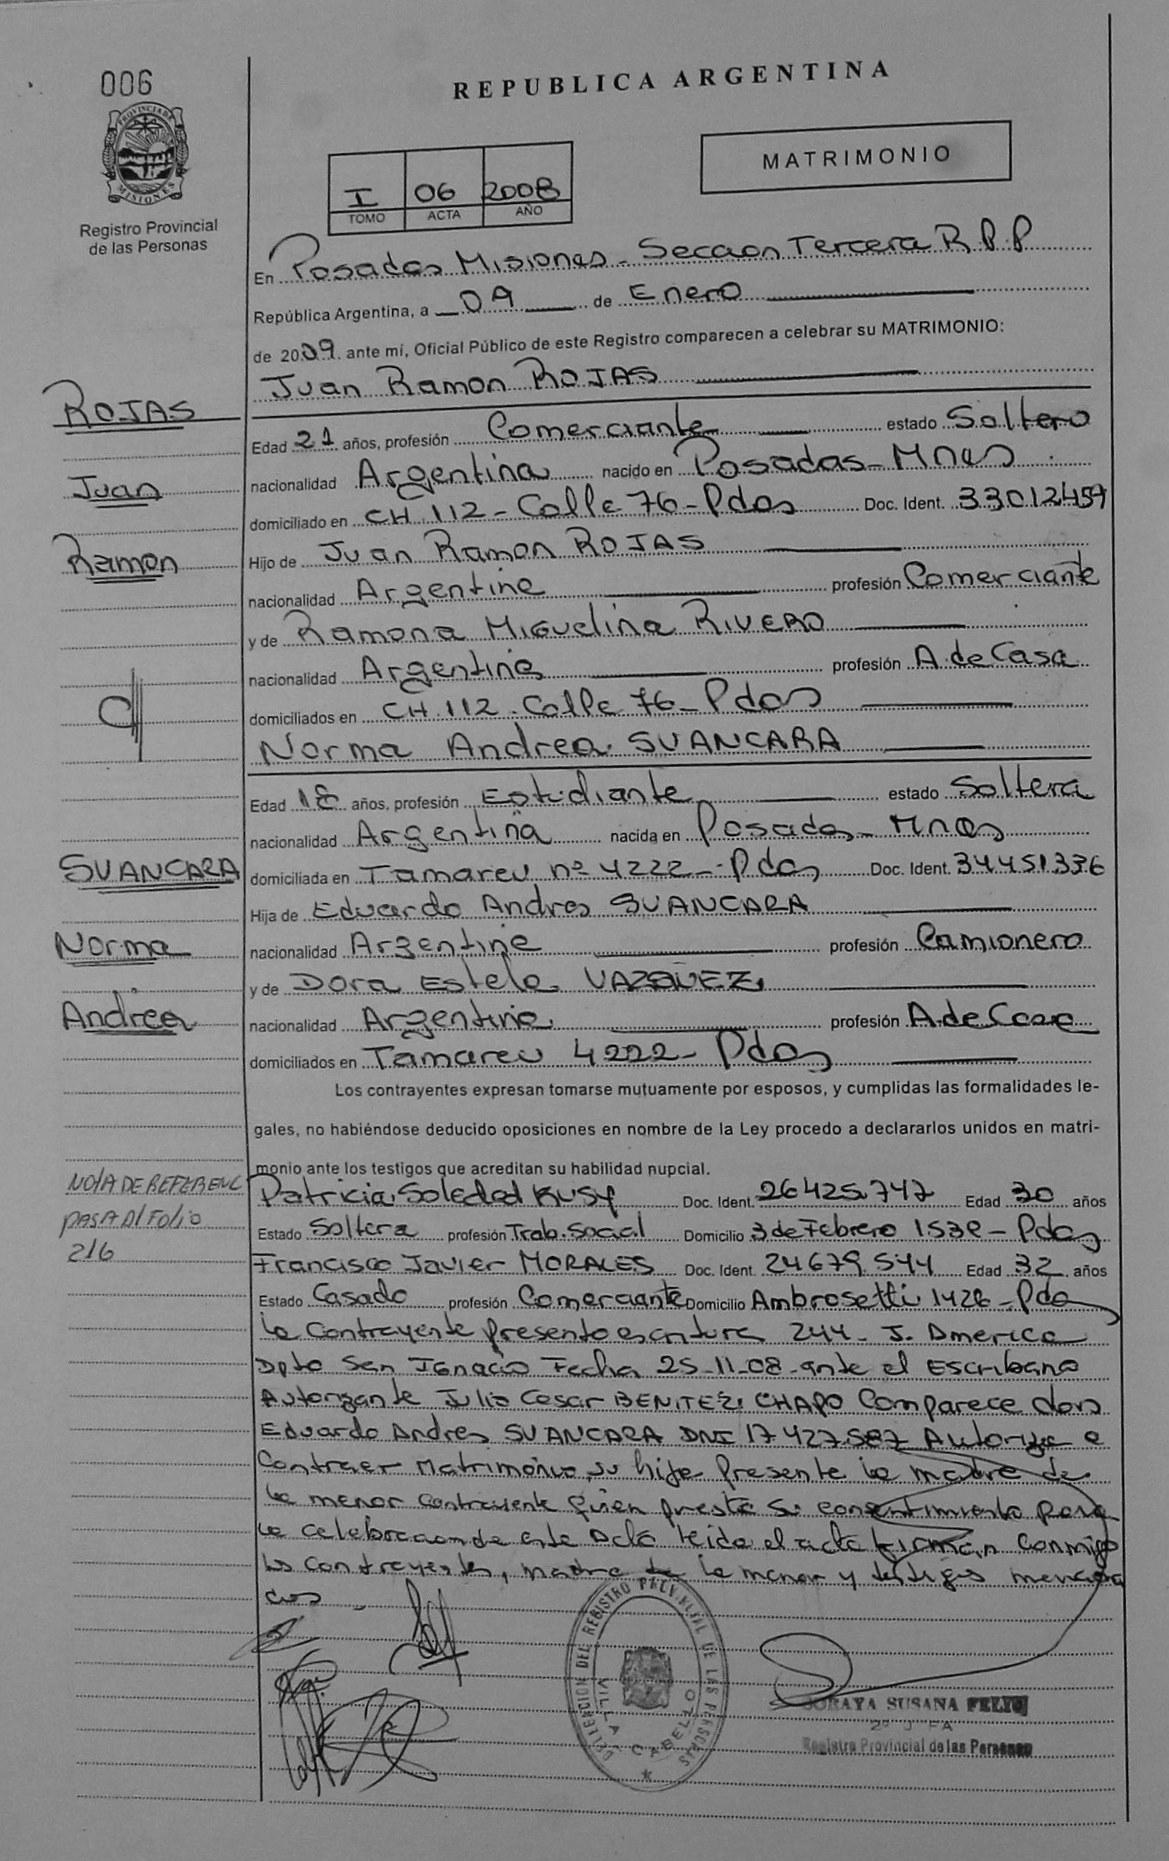 006
REPUBLICA ARGENTINA
PROVINCIA DE MISIONES
Registro Provincial
de las Personas
I 06 2008
TOMO ACTA AÑO
MATRIMONIO
En Posadas Misiones - Seccion Tercera R.P.P
República Argentina, a 09 de Enero
de 2009. ante mí, Oficial Público de este Registro comparecen a celebrar su MATRIMONIO:
Juan Ramon ROJAS
ROJAS
Juan
Ramon
Edad 21 años, profesión Comerciante estado Soltero
nacionalidad Argentina nacido en Posadas - Mnes
domiciliado en CH 112 - Calle 76 - Pdas Doc. Ident. 33.012.459
Hijo de Juan Ramon ROJAS
nacionalidad Argentina profesión Comerciante
y de Ramona Miguelina RIVERO
nacionalidad Argentina profesión A. de Casa
domiciliados en CH 112 - Calle 76 - Pdas
Norma Andrea SUANCARA
SUANCARA
Norma
Andrea
Edad 18 años, profesión Estudiante estado Soltera
nacionalidad Argentina nacida en Posadas - Mnes
domiciliada en Tamareu nº 4222 - Pdas Doc. Ident. 34451.336
Hija de Eduardo Andres SUANCARA
nacionalidad Argentina profesión Camionero
y de Dora Estela VAZQUEZ
nacionalidad Argentina profesión A. de Casa
domiciliados en Tamareu 4222 - Pdas
Los contrayentes expresan tomarse mutuamente por esposos, y cumplidas las formalidades le-
gales, no habiéndose deducido oposiciones en nombre de la Ley procedo a declararlos unidos en matri-
monio ante los testigos que acreditan su habilidad nupcial.
NOTA DE REFERENC
PASA Al Folio
216
Patricia Soledad KUSY Doc. Ident. 26425.747 Edad 30 años
Estado Soltera profesión Trab. Social Domicilio 3 de Febrero 1532 - Pdas
Francisco Javier MORALES Doc. Ident. 24679.544 Edad 32 años
Estado Casado profesión Comerciante Domicilio Ambrosetti 1426 - Pdas
la Contrayente presento escritura 244 - J. America
Dpto San Ignacio Fecha 25-11-08 - ante el Escribano
Autorizante Julio Cesar BENITEZ CHAPO Comparece don
Eduardo Andres SUANCARA DNI 17.427.587 Autoriza a
Contraer Matrimonio su hija presente la madre de
la menor contrayente quien presta su consentimiento para
la celebracion de este Acto leida el acta firman conmigo
los contrayentes, madre de la menor y testigos menciona
dos
DELEGACION DEL REGISTRO PROVINCIAL DE LAS PERSONAS
VILLA CABELLO
SORAYA SUSANA FELIU
Registro Provincial de las Personas